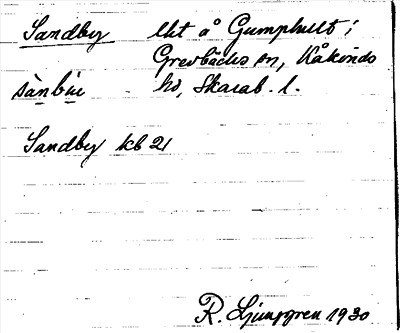 Sandby lht å Gumphult i
Grevbäcks sn, Kåkinds
sànbi̇̀ hd, Skarab. l.
Sandby kb 21
R. Ljunggren 1930